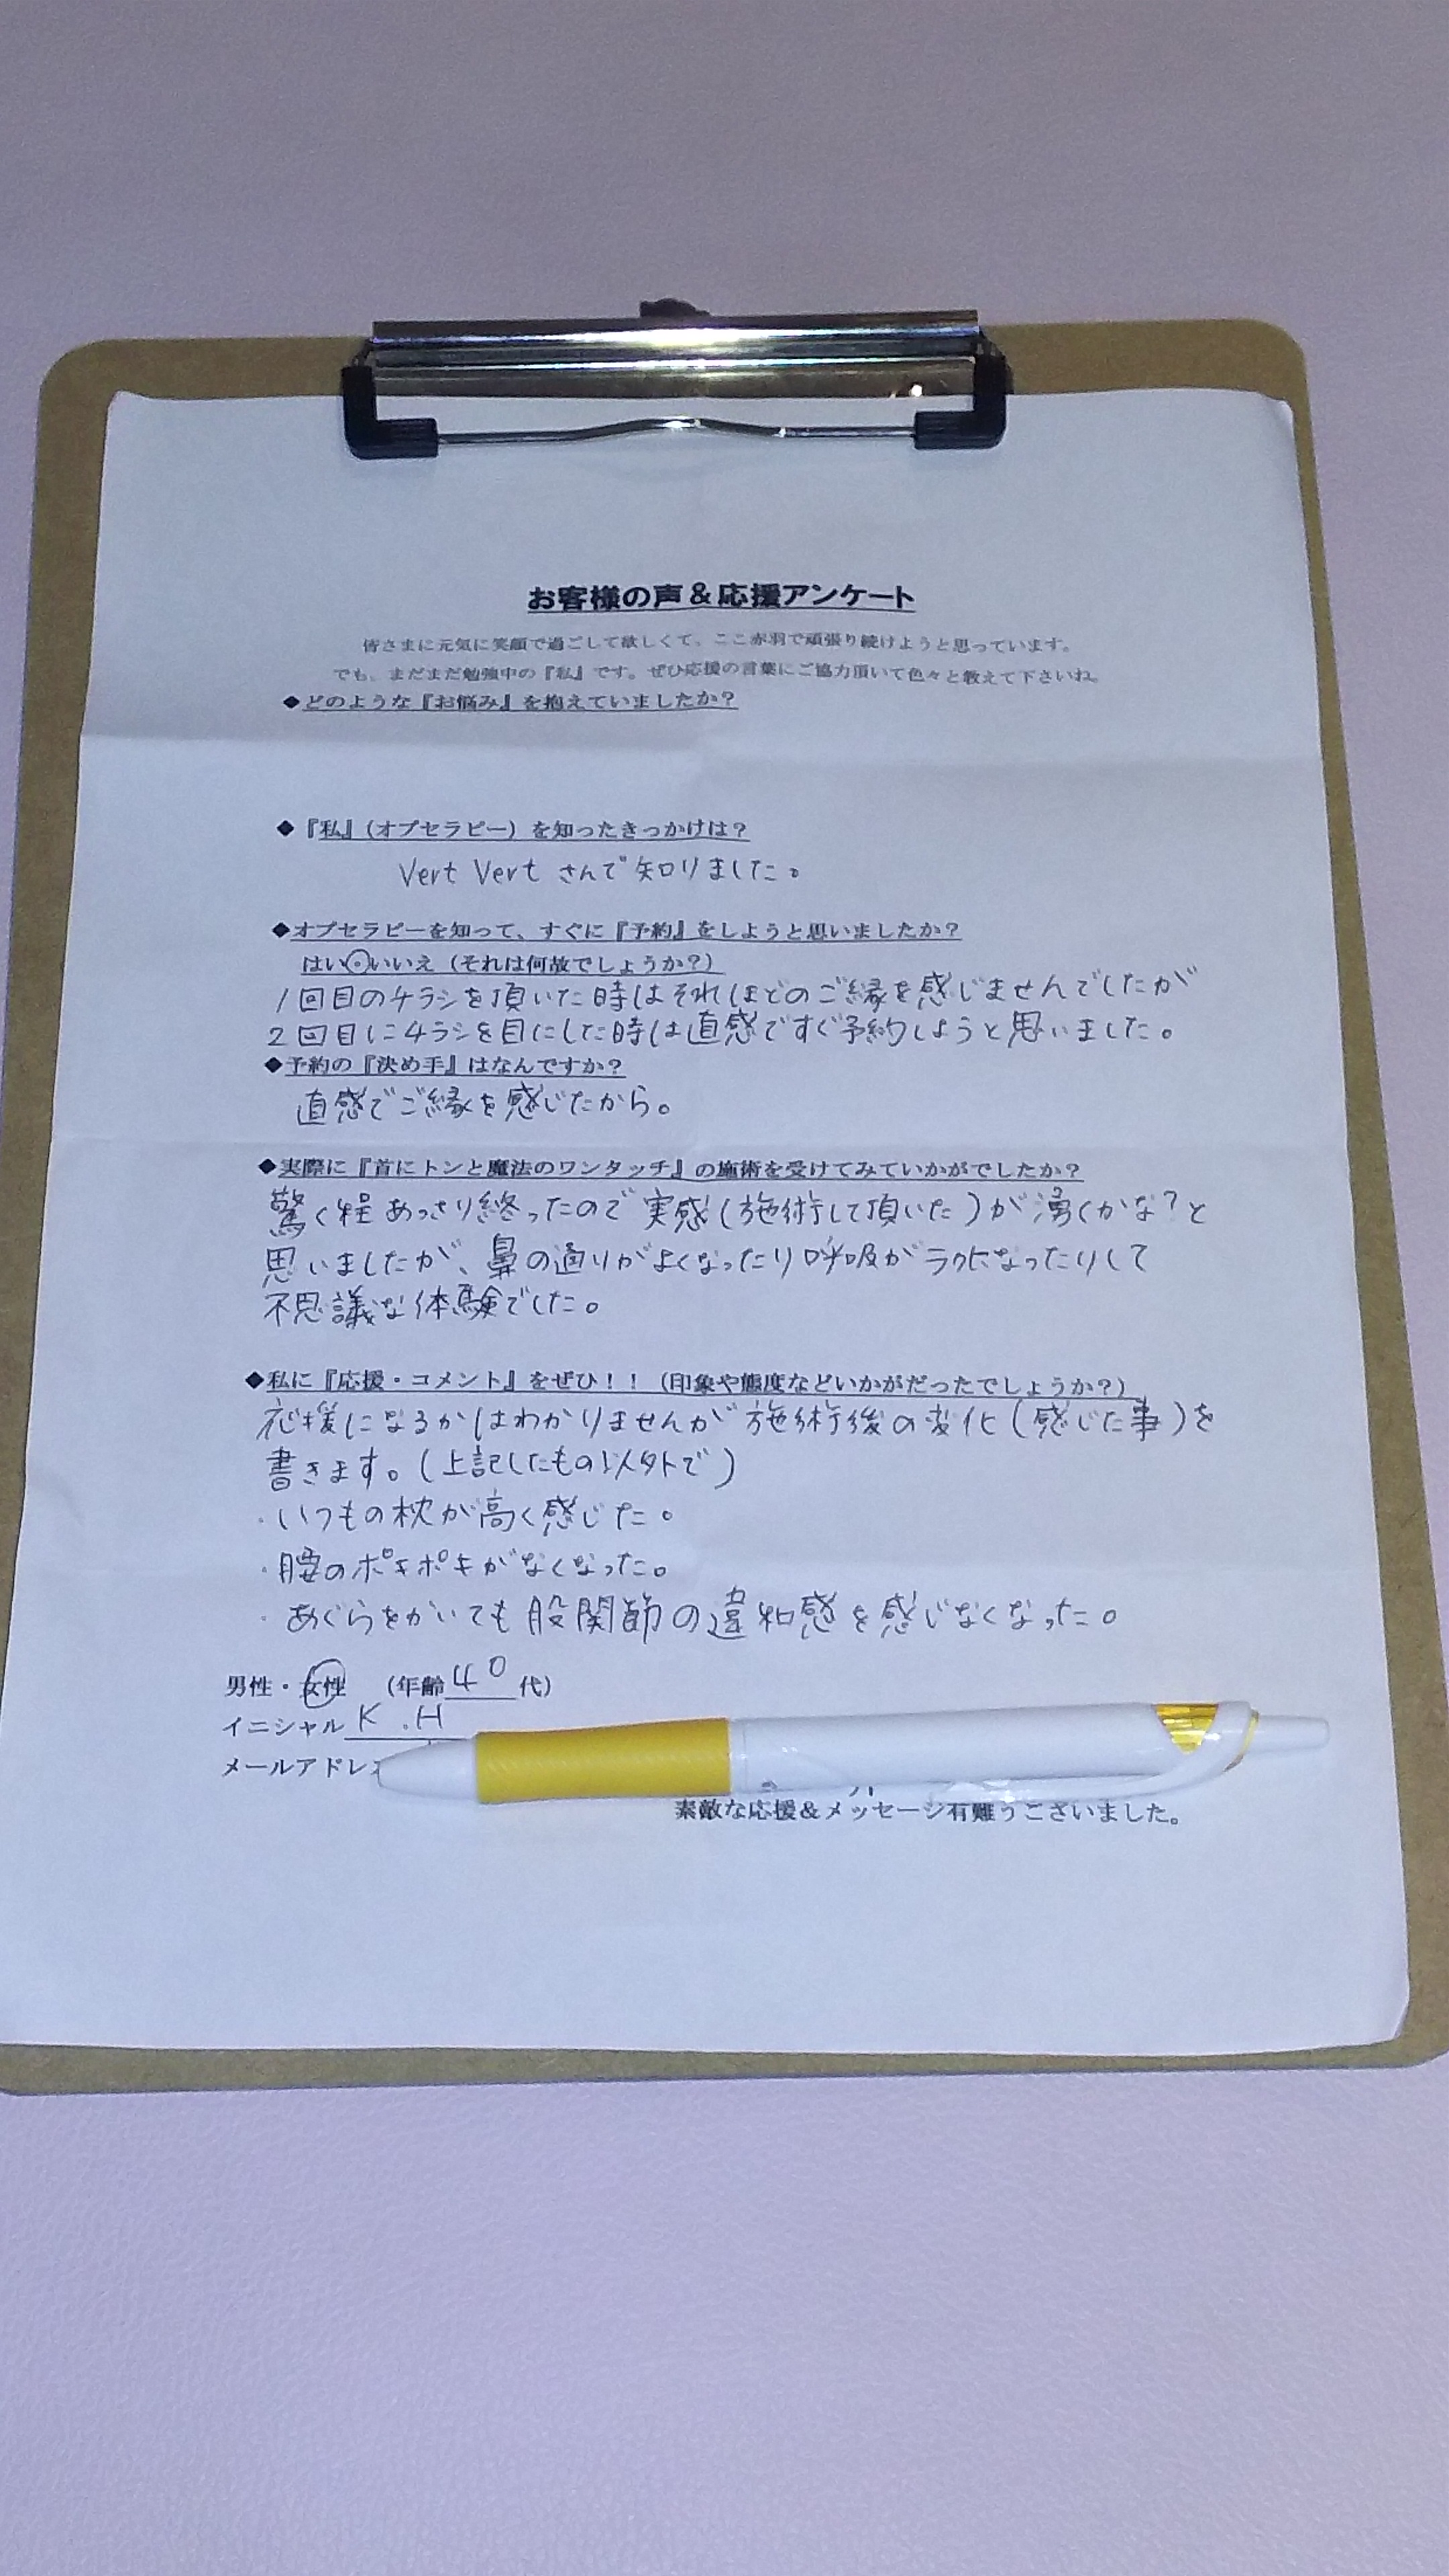 お客様の声＆応援アンケート
皆さまに元気に笑顔で過ごして欲しくて、ここ赤羽で頑張り続けようと思っています。
でも、まだまだ勉強中の『私』です。ぜひ応援の言葉にご協力頂いて色々と教えて下さいね。
◆どのような『お悩み』を抱えていましたか？
◆『私』（オプセラピー）を知ったきっかけは？
Vert Vert さんで知りました。
◆オプセラピーを知って、すぐに『予約』をしようと思いましたか？
はい・いいえ（それは何故でしょうか？）
1回目のチラシを頂いた時はそれほどのご縁を感じませんでしたが
2回目にチラシを目にした時は直感ですぐ予約しようと思いました。
◆予約の『決め手』はなんですか？
直感でご縁を感じたから。
◆実際に『首にトンと魔法のワンタッチ』の施術を受けてみていかがでしたか？
驚く程あっさり終ったので実感（施術して頂いた）が湧くかな？と
思いましたが、鼻の通りがよくなったり呼吸がラクになったりして
不思議な体験でした。
◆私に『応援・コメント』をぜひ！！（印象や態度などいかがだったでしょうか？）
応援になるかはわかりませんが施術後の変化（感じた事）を
書きます。（上記したもの以外で）
・いつもの枕が高く感じた。
・腰のポキポキがなくなった。
・あぐらをかいても股関節の違和感を感じなくなった。
男性・女性　（年齢40代）
イニシャル K.H
メールアドレス
素敵な応援＆メッセージ有難うございました。